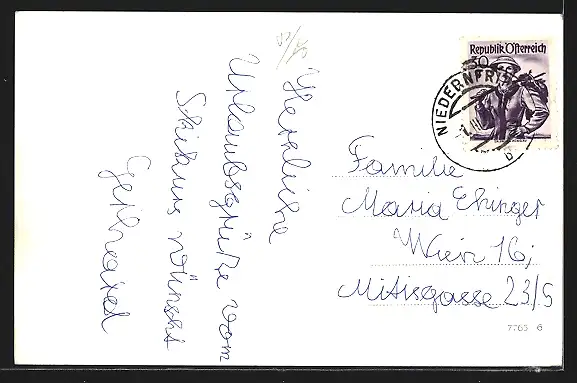 Herzliche
Urlaubsgrüße vom
Skikurs wünscht
Gerhard
Republik Österreich
30
NIEDERNFRI
b
Familie
Maria Ehinger
Wien 16,
Mitisgasse 23/5
7765 6